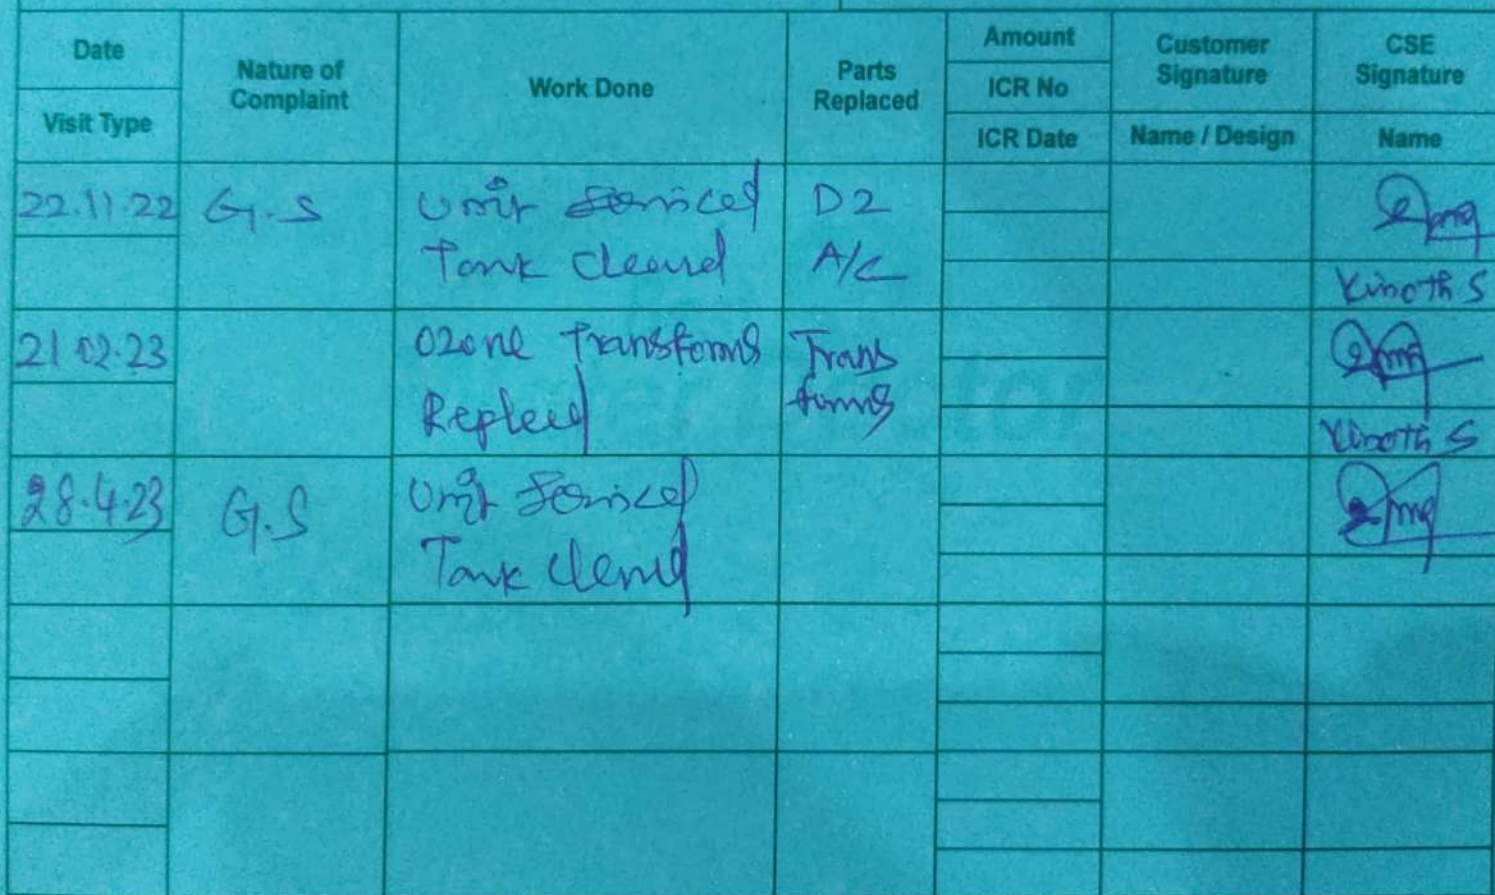 Date
Visit Type
Nature of
Complaint
Work Done
Parts
Replaced
Amount
ICR No
ICR Date
Customer
Signature
Name / Design
CSE
Signature
Name
22.11.22
G.S
Unit Serviced
Tank Cleaned
D2
A/C
Vinoth S
21 02.23
Ozone Transforms
Replced
Trans
forms
Vinoth S
28.4.23
G.S
Unit Serviced
Tank Clened